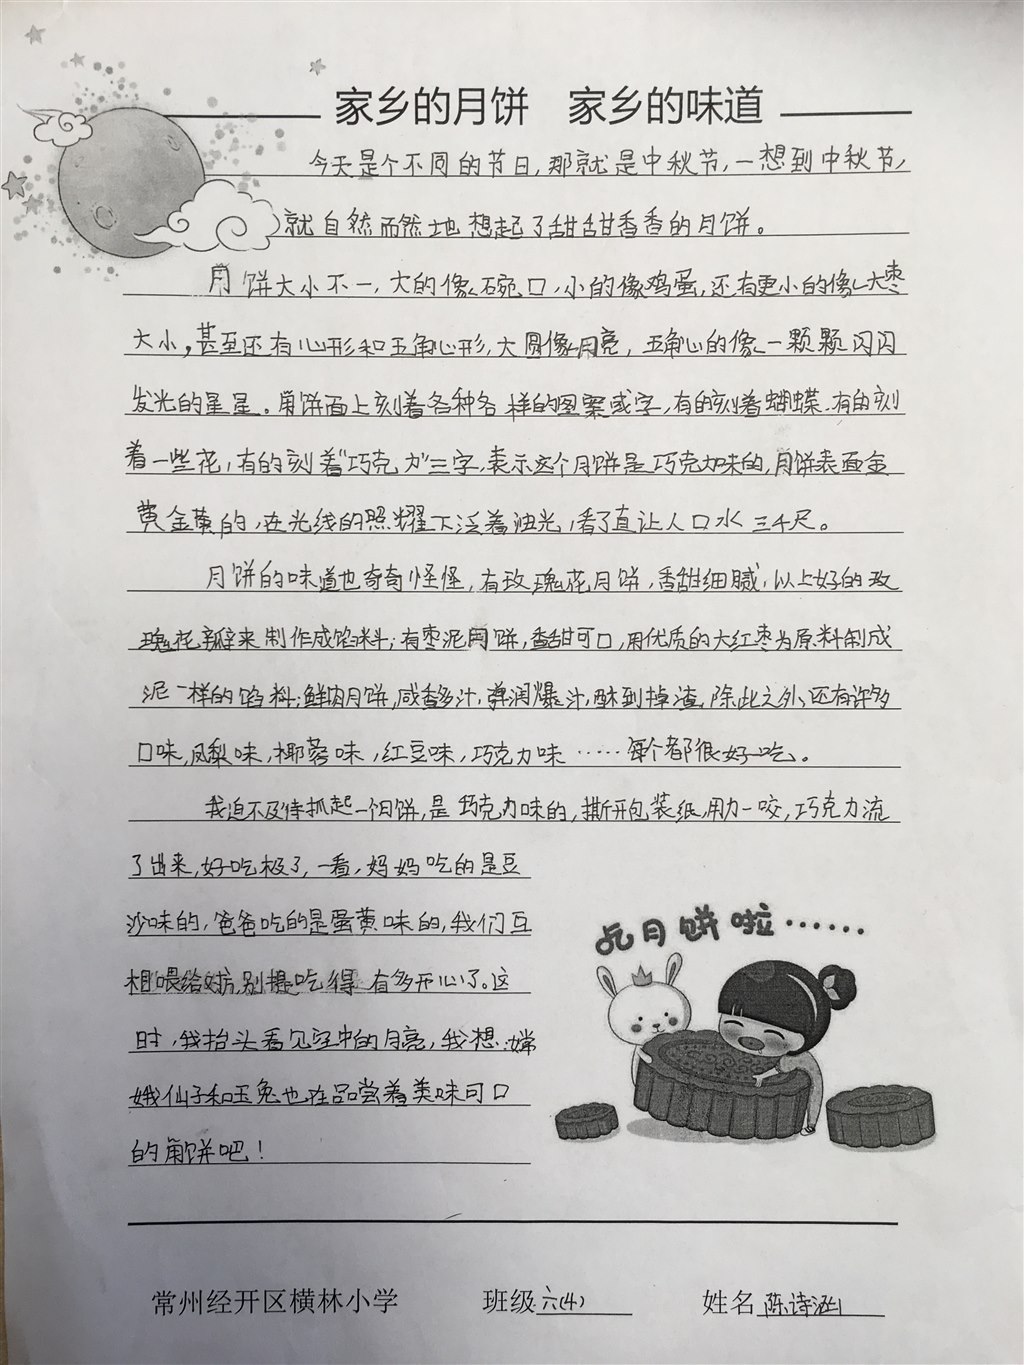 家乡的月饼　家乡的味道
今天是个不同的节日,那就是中秋节,一想到中秋节,
就自然而然地想起了甜甜香香的月饼。
月饼大小不一,大的像碗口,小的像鸡蛋,还有更小的像大枣
大小,甚至还有心形和五角心形,大圆像月亮,五角心的像一颗颗闪闪
发光的星星。月饼面上刻着各种各样的图案或字,有的刻着蝴蝶,有的刻
着一些花,有的刻着“巧克力”三字,表示这个月饼是巧克力味的,月饼表面金
黄金黄的,在光线的照耀下泛着油光,看了直让人口水三千尺。
月饼的味道也奇奇怪怪,有玫瑰花月饼,香甜细腻,以上好的玫
瑰花瓣来制作成馅料;有枣泥月饼,香甜可口,用优质的大红枣为原料制成
泥一样的馅料;鲜肉月饼,咸香多汁,弹润爆汁,酥到掉渣,除此之外,还有许多
口味,凤梨味,椰蓉味,红豆味,巧克力味……每个都很好吃。
我迫不及待抓起一个月饼,是巧克力味的,撕开包装纸,用力一咬,巧克力流
了出来,好吃极了,一看,妈妈吃的是豆
沙味的,爸爸吃的是蛋黄味的,我们互
相喂给对方,别提吃得有多开心了。这
时,我抬头看见空中的月亮,我想:嫦
娥仙子和玉兔也在品尝着美味可口
的月饼吧!
吃月饼啦……
常州经开区横林小学　班级 六(4)　姓名 陈诗涵